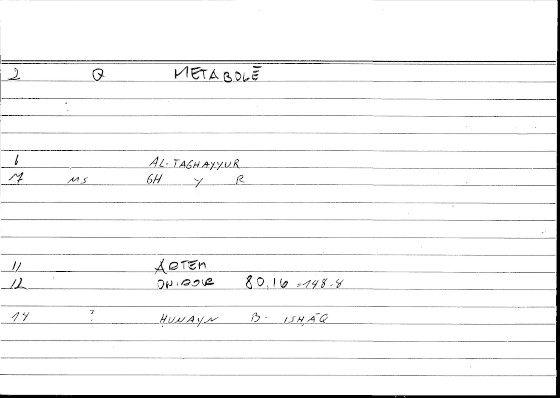 2 Q METABOLĒ
6 AL-TAGHAYYUR
7 MS GH Y R
11 ARTEM
12 ONIROCR 80,16 = 148-8
14 ? ḤUNAYN B. ISḤĀQ